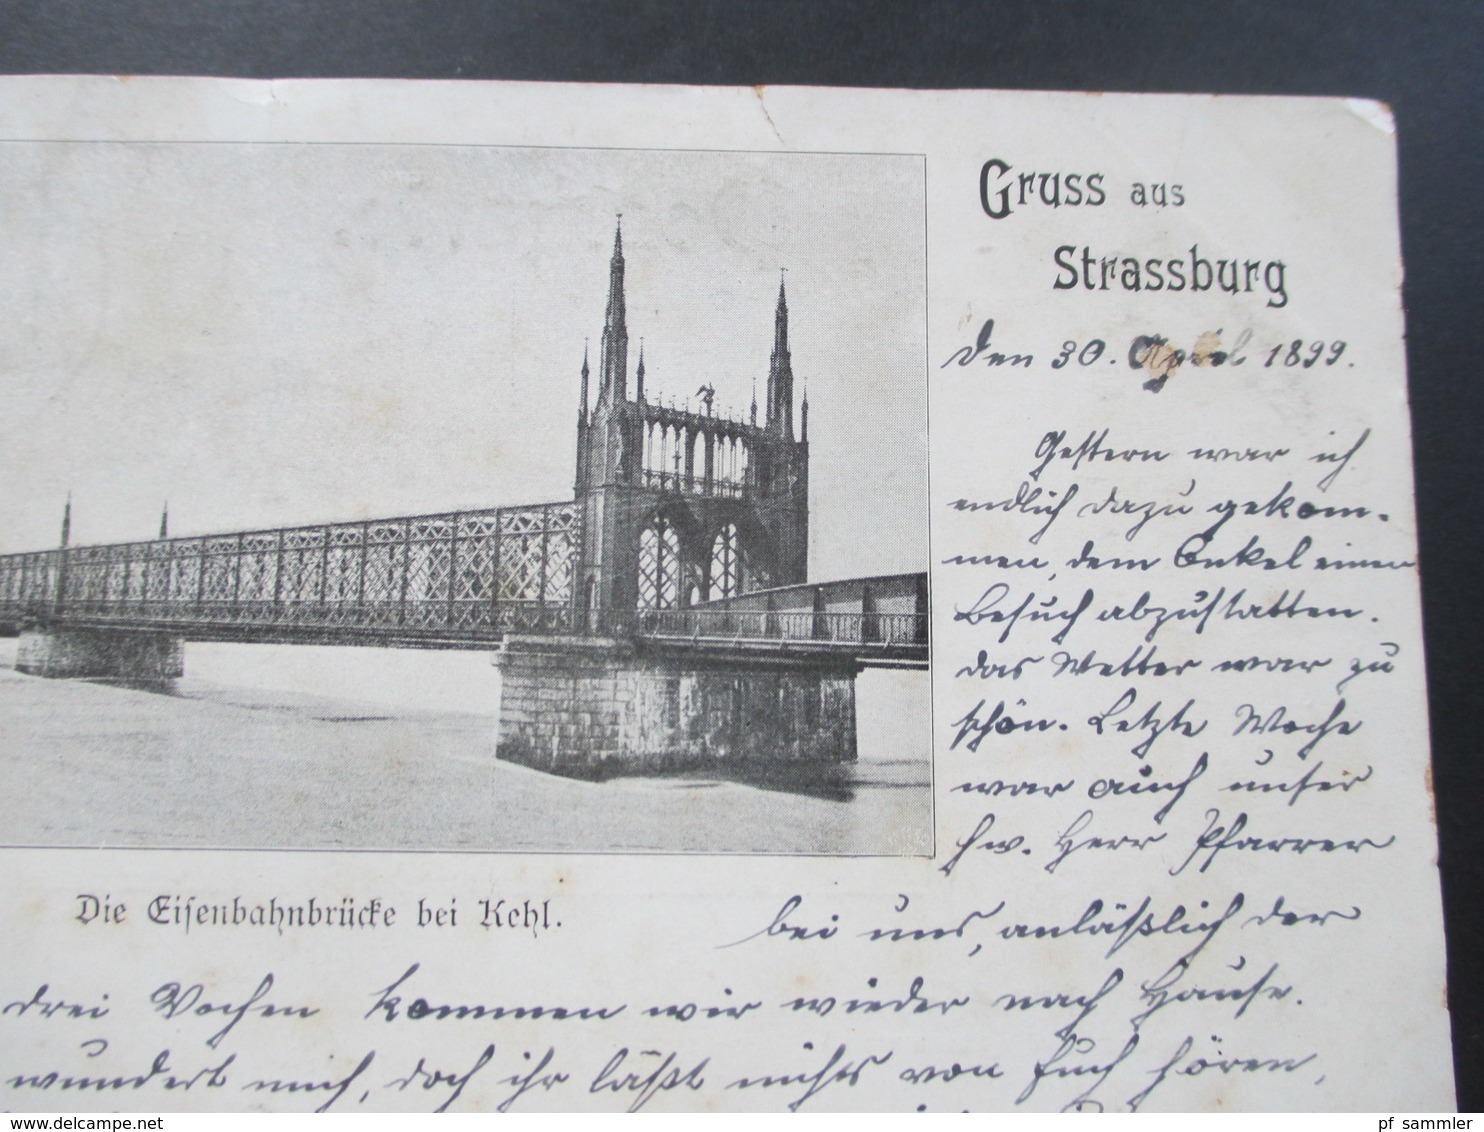 Gruss aus
Strassburg
Den 30. April 1899.
Gestern war ich
endlich dazu gekom-
men, dem Onkel einen
Besuch abzustatten.
das Wetter war zu
schön. Letzte Woche
war auch unser
hw. Herr Pfarrer
Die Eisenbahnbrücke bei Kehl.
bei uns, anläßlich der
drei Wochen kommen wir wieder nach Hause.
wundert mich, doch ihr läßt nichts von Euch hören,
www.delcampe.net
pf_sammler